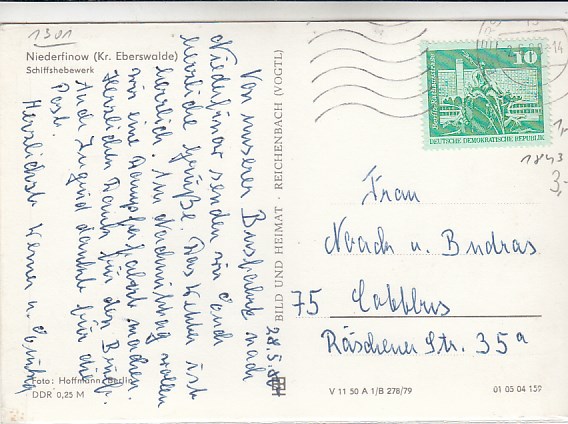 1301
Niederfinow (Kr. Eberswalde)
Schiffshebewerk
28.5.80
Von unserer Busfahrt nach
Niederfinow senden wir Euch
herzliche Grüße. Das Wetter ist
herrlich. Am Nachmittag wollen
wir eine Dampferfahrt machen.
Herzlichen Dank für den Brief.
Auch Ingrid dankt für die
Post.
Herzlichst Werner u.
Foto: Hoffmann, Berlin
DDR 0,25 M
BILD UND HEIMAT · REICHENBACH (VOGTL)
V 11 50 A 1/B 278/79
01 05 04 159
10
DEUTSCHE DEMOKRATISCHE REPUBLIK
1843
3,-
Frau
Noack u. Budras
75 Cottbus
Räschener Str. 35a